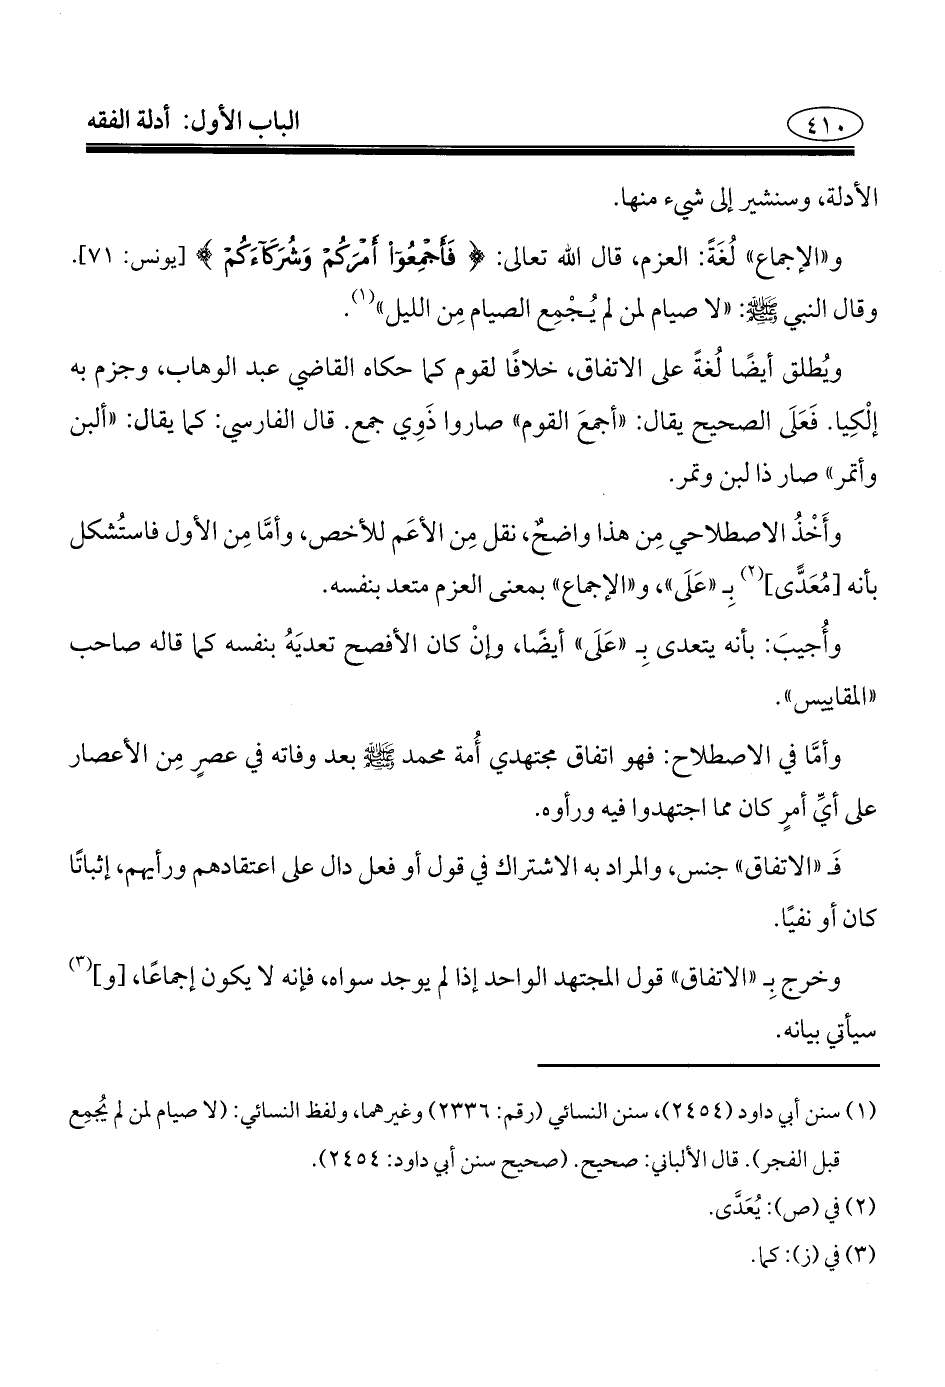 ٤١٠ الباب الأول: أدلة الفقه
الأدلة، وسنشير إلى شيء منها.
و«الإجماع» لُغَةً: العزم، قال الله تعالى: ﴿ فَأَجْمِعُوٓا۟ أَمْرَكُمْ وَشُرَكَآءَكُمْ ﴾ [يونس: ٧١].
وقال النبي ﷺ: «لا صيام لمن لم يُجْمِع الصيام مِن الليل»(١).
ويُطلق أيضًا لُغةً على الاتفاق، خلافًا لقوم كما حكاه القاضي عبد الوهاب، وجزم به
إلْكِيا. فَعَلَى الصحيح يقال: «أجمعَ القوم» صاروا ذَوِي جمع. قال الفارسي: كما يقال: «ألبن
وأتمر» صار ذا لبن وتمر.
وأَخْذُ الاصطلاحي مِن هذا واضحٌ، نقل مِن الأعَم للأخص، وأمَّا مِن الأول فاستُشكل
بأنه [مُعَدًّى](٢) بِـ «عَلَى»، و«الإجماع» بمعنى العزم متعد بنفسه.
وأُجيبَ: بأنه يتعدى بِـ «عَلَى» أيضًا، وإنْ كان الأفصح تعديَهُ بنفسه كما قاله صاحب
«المقاييس».
وأمَّا في الاصطلاح: فهو اتفاق مجتهدي أُمة محمد ﷺ بعد وفاته في عصرٍ مِن الأعصار
على أيِّ أمرٍ كان مما اجتهدوا فيه ورأوه.
فَـ «الاتفاق» جنس، والمراد به الاشتراك في قول أو فعل دال على اعتقادهم ورأيهم، إثباتًا
كان أو نفيًا.
وخرج بِـ «الاتفاق» قول المجتهد الواحد إذا لم يوجد سواه، فإنه لا يكون إجماعًا، [و](٣)
سيأتي بيانه.
(١) سنن أبي داود (٢٤٥٤)، سنن النسائي (رقم: ٢٣٣٦) وغيرهما، ولفظ النسائي: (لا صيام لمن لم يُجْمِع
قبل الفجر). قال الألباني: صحيح. (صحيح سنن أبي داود: ٢٤٥٤).
(٢) في (ص): يُعَدَّى.
(٣) في (ز): كما.